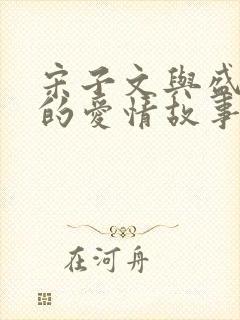 宋子文與盛
的愛情故事
在河舟